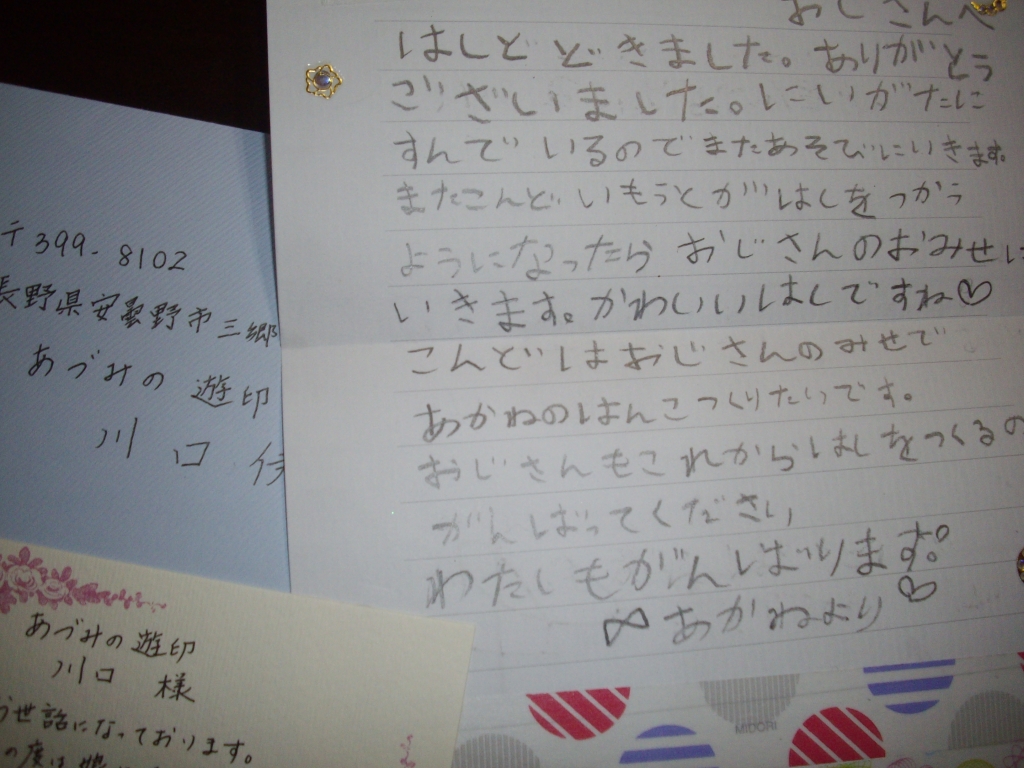 おじさんへ
はしとどきました。ありがとう
ございました。にいがたに
すんでいるのでまたあそびにいきます。
またこんどいもうとがはしをつかう
ようになったらおじさんのおみせに
いきます。かわいいはしですね♡
こんどはおじさんのみせで
あかねのはんこつくりたいです。
おじさんもこれからはしをつくるの
がんばってください
わたしもがんばります。
あかねより♡
MIDORI
〒399-8102
長野県安曇野市三郷
あづみの遊印
川口
あづみの遊印
川口様
世話になっております。
の度は